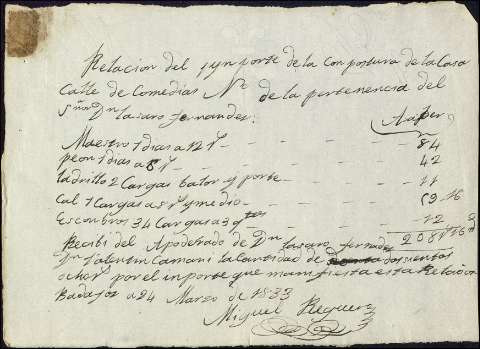 Relacion del ynporte de la Conpostura de la Casa
Calle de Comedias Nº de la pertenencia del
Sñor Dn lasaro fernandes:
Maestro 7 dias a 12 r - - - - 84
peon 7 dias a 6 r - - - - 42
ladrillo 2 Cargas balor y porte - - - - 11
Cal 7 Cargas a 8 r y medio - - - - 59..16
Escombros 34 Cargas a 3 - - - - 12
208 16
Recibi del Apoderado de Dn lasaro fernades
Dn Valentin Camani la Cantidad de dosientos
ocho r por el inporte que manifiesta esta Relacion
Badajoz a 24 Marzo de 1833
Miguel Reguera